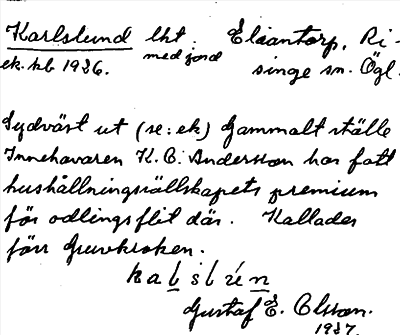 Karlslund lht. Eliantorp, Ri-
med jord
ek. kb 1936. singe sn. Ögl.
Sydväst ut (se: ek) Gammalt ställe
Innehavaren K. E. Andersson har fått
hushållningssällskapets premium
för odlingsflit där. Kallades
förr Gruvkroken.
kalslún
Gustaf E. Olsson.
1937.